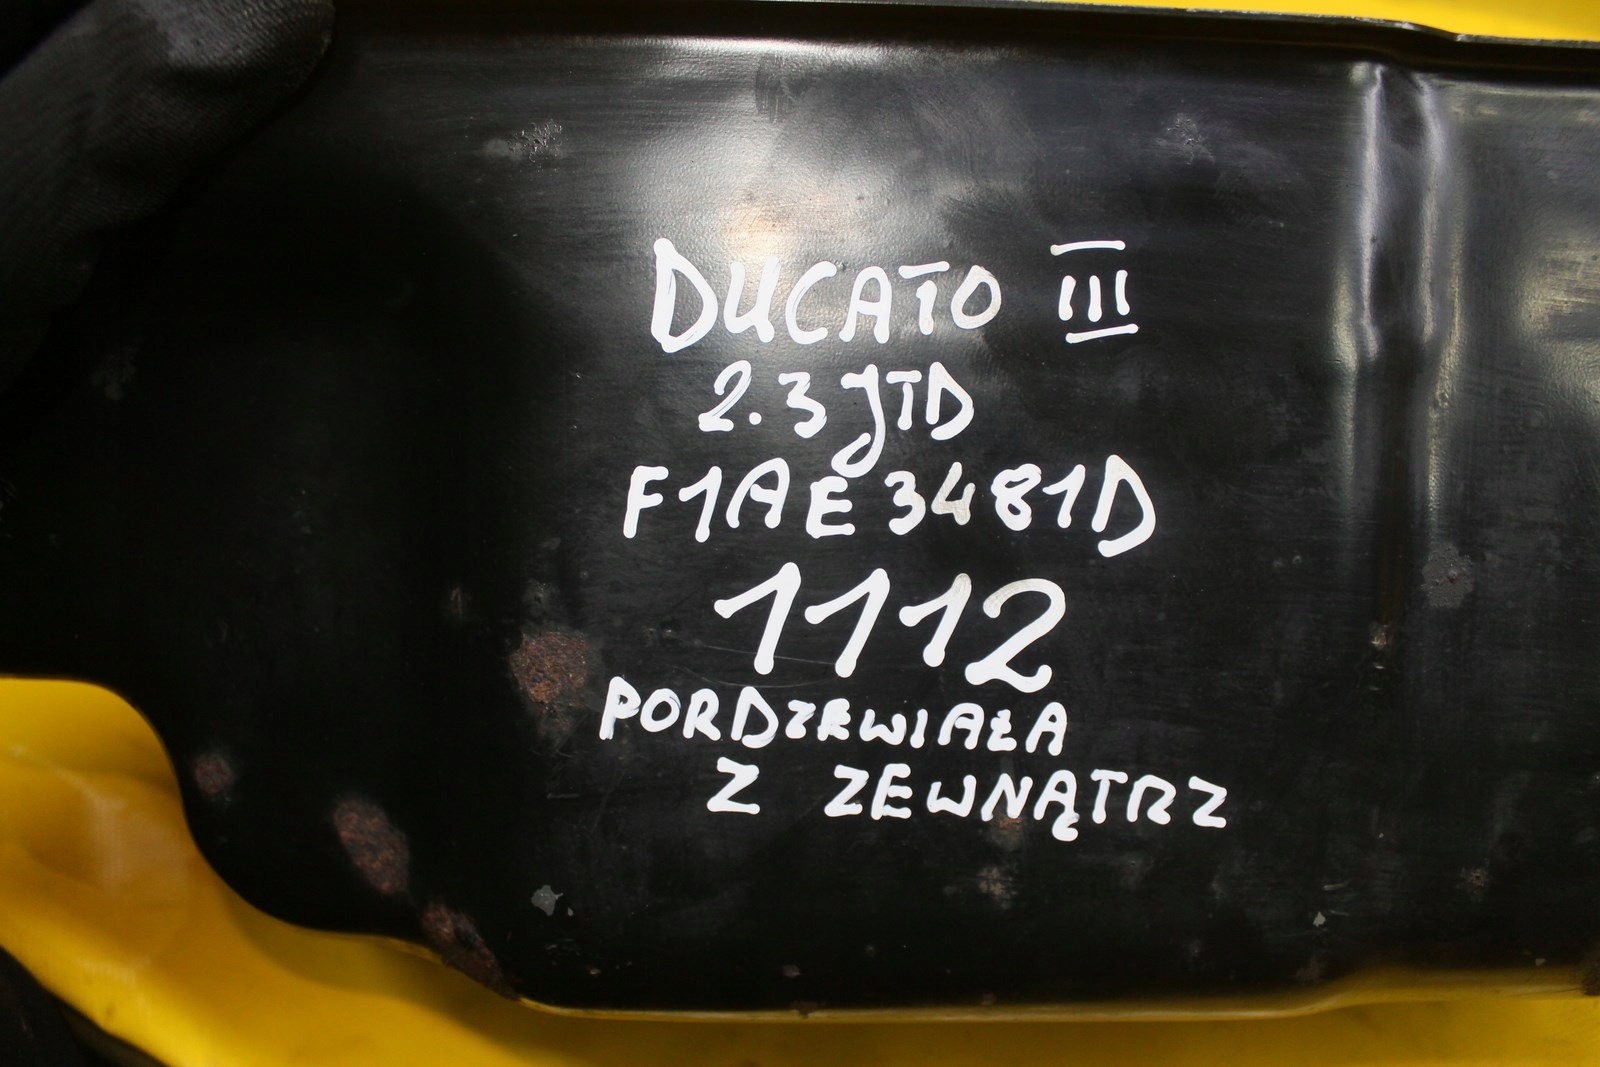 DUCATO III
2.3 JTD
F1AE3481D
1112
PORDZEWIAŁA
Z ZEWNĄTRZ